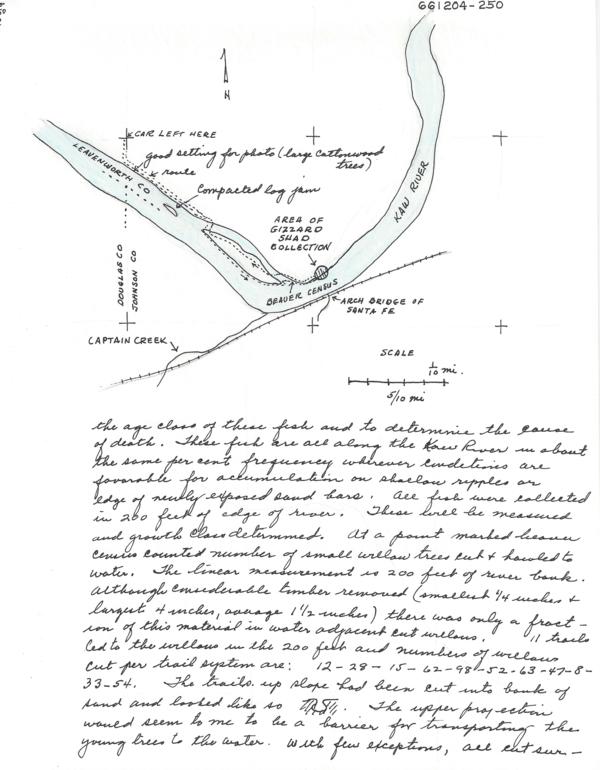 661204-250
N
CAR LEFT HERE
good setting for photo (large cottonwood
trees)
route
LEAVENWORTH CO
Compacted log jam
KAW RIVER
AREA OF
GIZZARD
SHAD
COLLECTION
DOUGLAS CO
JOHNSON CO
BEAVER CENSUS
ARCH BRIDGE OF
SANTA FE
CAPTAIN CREEK
SCALE
1/10 mi.
5/10 mi
the age class of these fish and to determine the cause
of death. These fish are all along the Kaw River in about
the same per cent frequency wherever conditions are
favorable for accumulation on shallow ripples or
edge of newly-exposed sand bars. All fish were collected
in 200 feet of edge of river. These will be measured
and growth class determined. At a point marked beaver
census counted number of small willow trees cut & hauled to
water. The linear measurement is 200 feet of river bank.
Although considerable timber removed (smallest 1/4 inches &
largest 4 inches, average 1 1/2 inches) there was only a fract-
ion of this material in water adjacent cut willows. 11 trails
led to the willows in the 200 feet and numbers of willows
cut per trail system are: 12-28-15-62-98-52-63-47-8-
33-54. The trails up slope had been cut into bank of
sand and looked like so. The upper projection
would seem to me to be a barrier for transporting the
young trees to the water. With few exceptions, all cut sur-